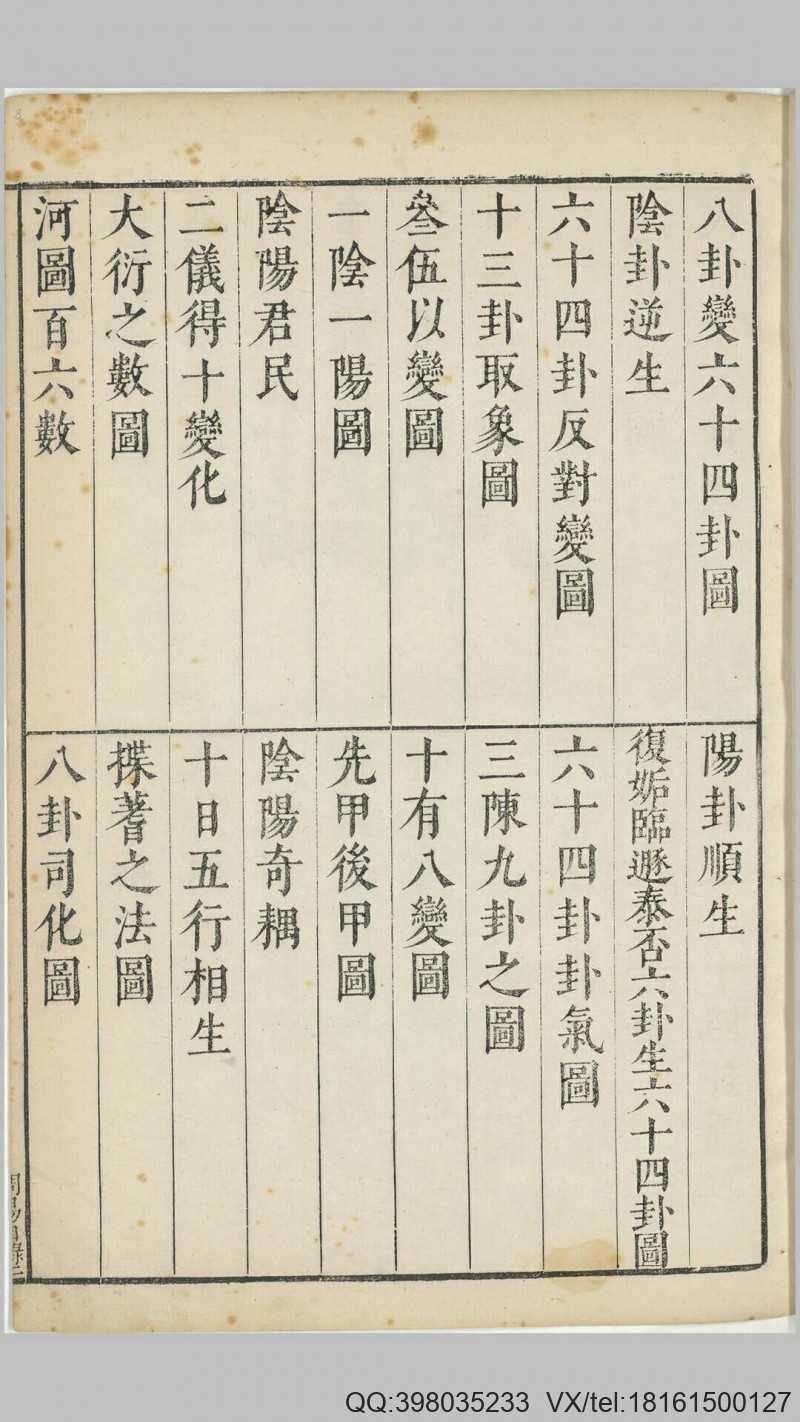 八卦變六十四卦圖
陽卦順生
陰卦逆生
復姤臨遯泰否六卦生六十四卦圖
六十四卦反對變圖
六十四卦卦氣圖
十三卦取象圖
三陳九卦之圖
叅伍以變圖
十有八變圖
一陰一陽圖
先甲後甲圖
陰陽君民
陰陽奇耦
二儀得十變化
十日五行相生
大衍之數圖
揲蓍之法圖
河圖百六數
八卦司化圖
QQ:398035233 VX/tel:18161500127